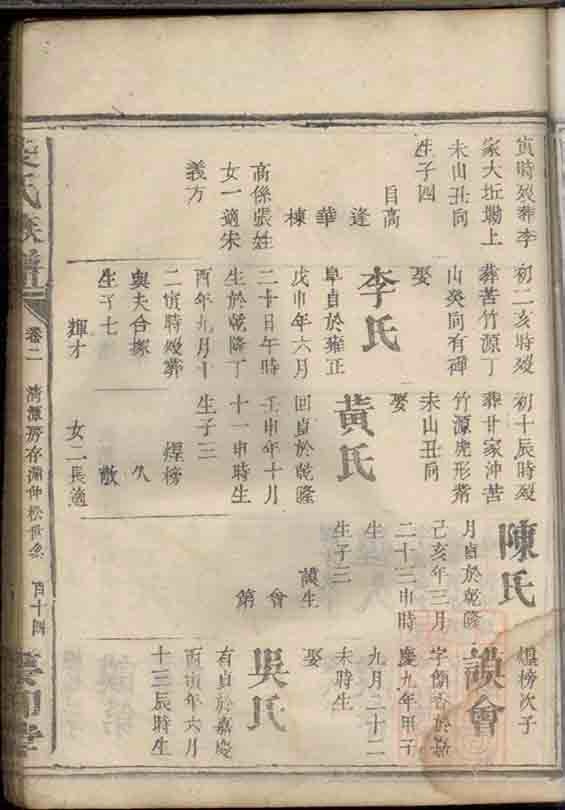 寅時殁葬李
家大坵塝上
未山丑向
生子四
自高
逢
華
棟
高係張姓
女一適宋
義方
初二亥時殁
葬苦竹源丁
山癸向有碑
娶
李氏
阜貞於雍正
戊申年六月
二十日午時
生於乾隆丁
酉年九月十
二寅時殁葬
與夫合塚
生子七
輝才
初十辰時殁
葬廿家沖苦
竹源虎形
未山丑向
娶
黃氏
回貞於乾隆
壬申年十月
十一申時生
生子三
煋榜
久
敷
女二長適
陳氏
月貞於乾隆
己亥年三月
二十三申時
生
生子三
謨生
會
第
煋榜次子
謨會
字顏香於嘉
慶九年甲子
九月二十二
未時生
娶
吳氏
有貞於嘉慶
丙寅年六月
十三辰時生
氏族譜
卷二
清潭房存淵仲松世系
百十四